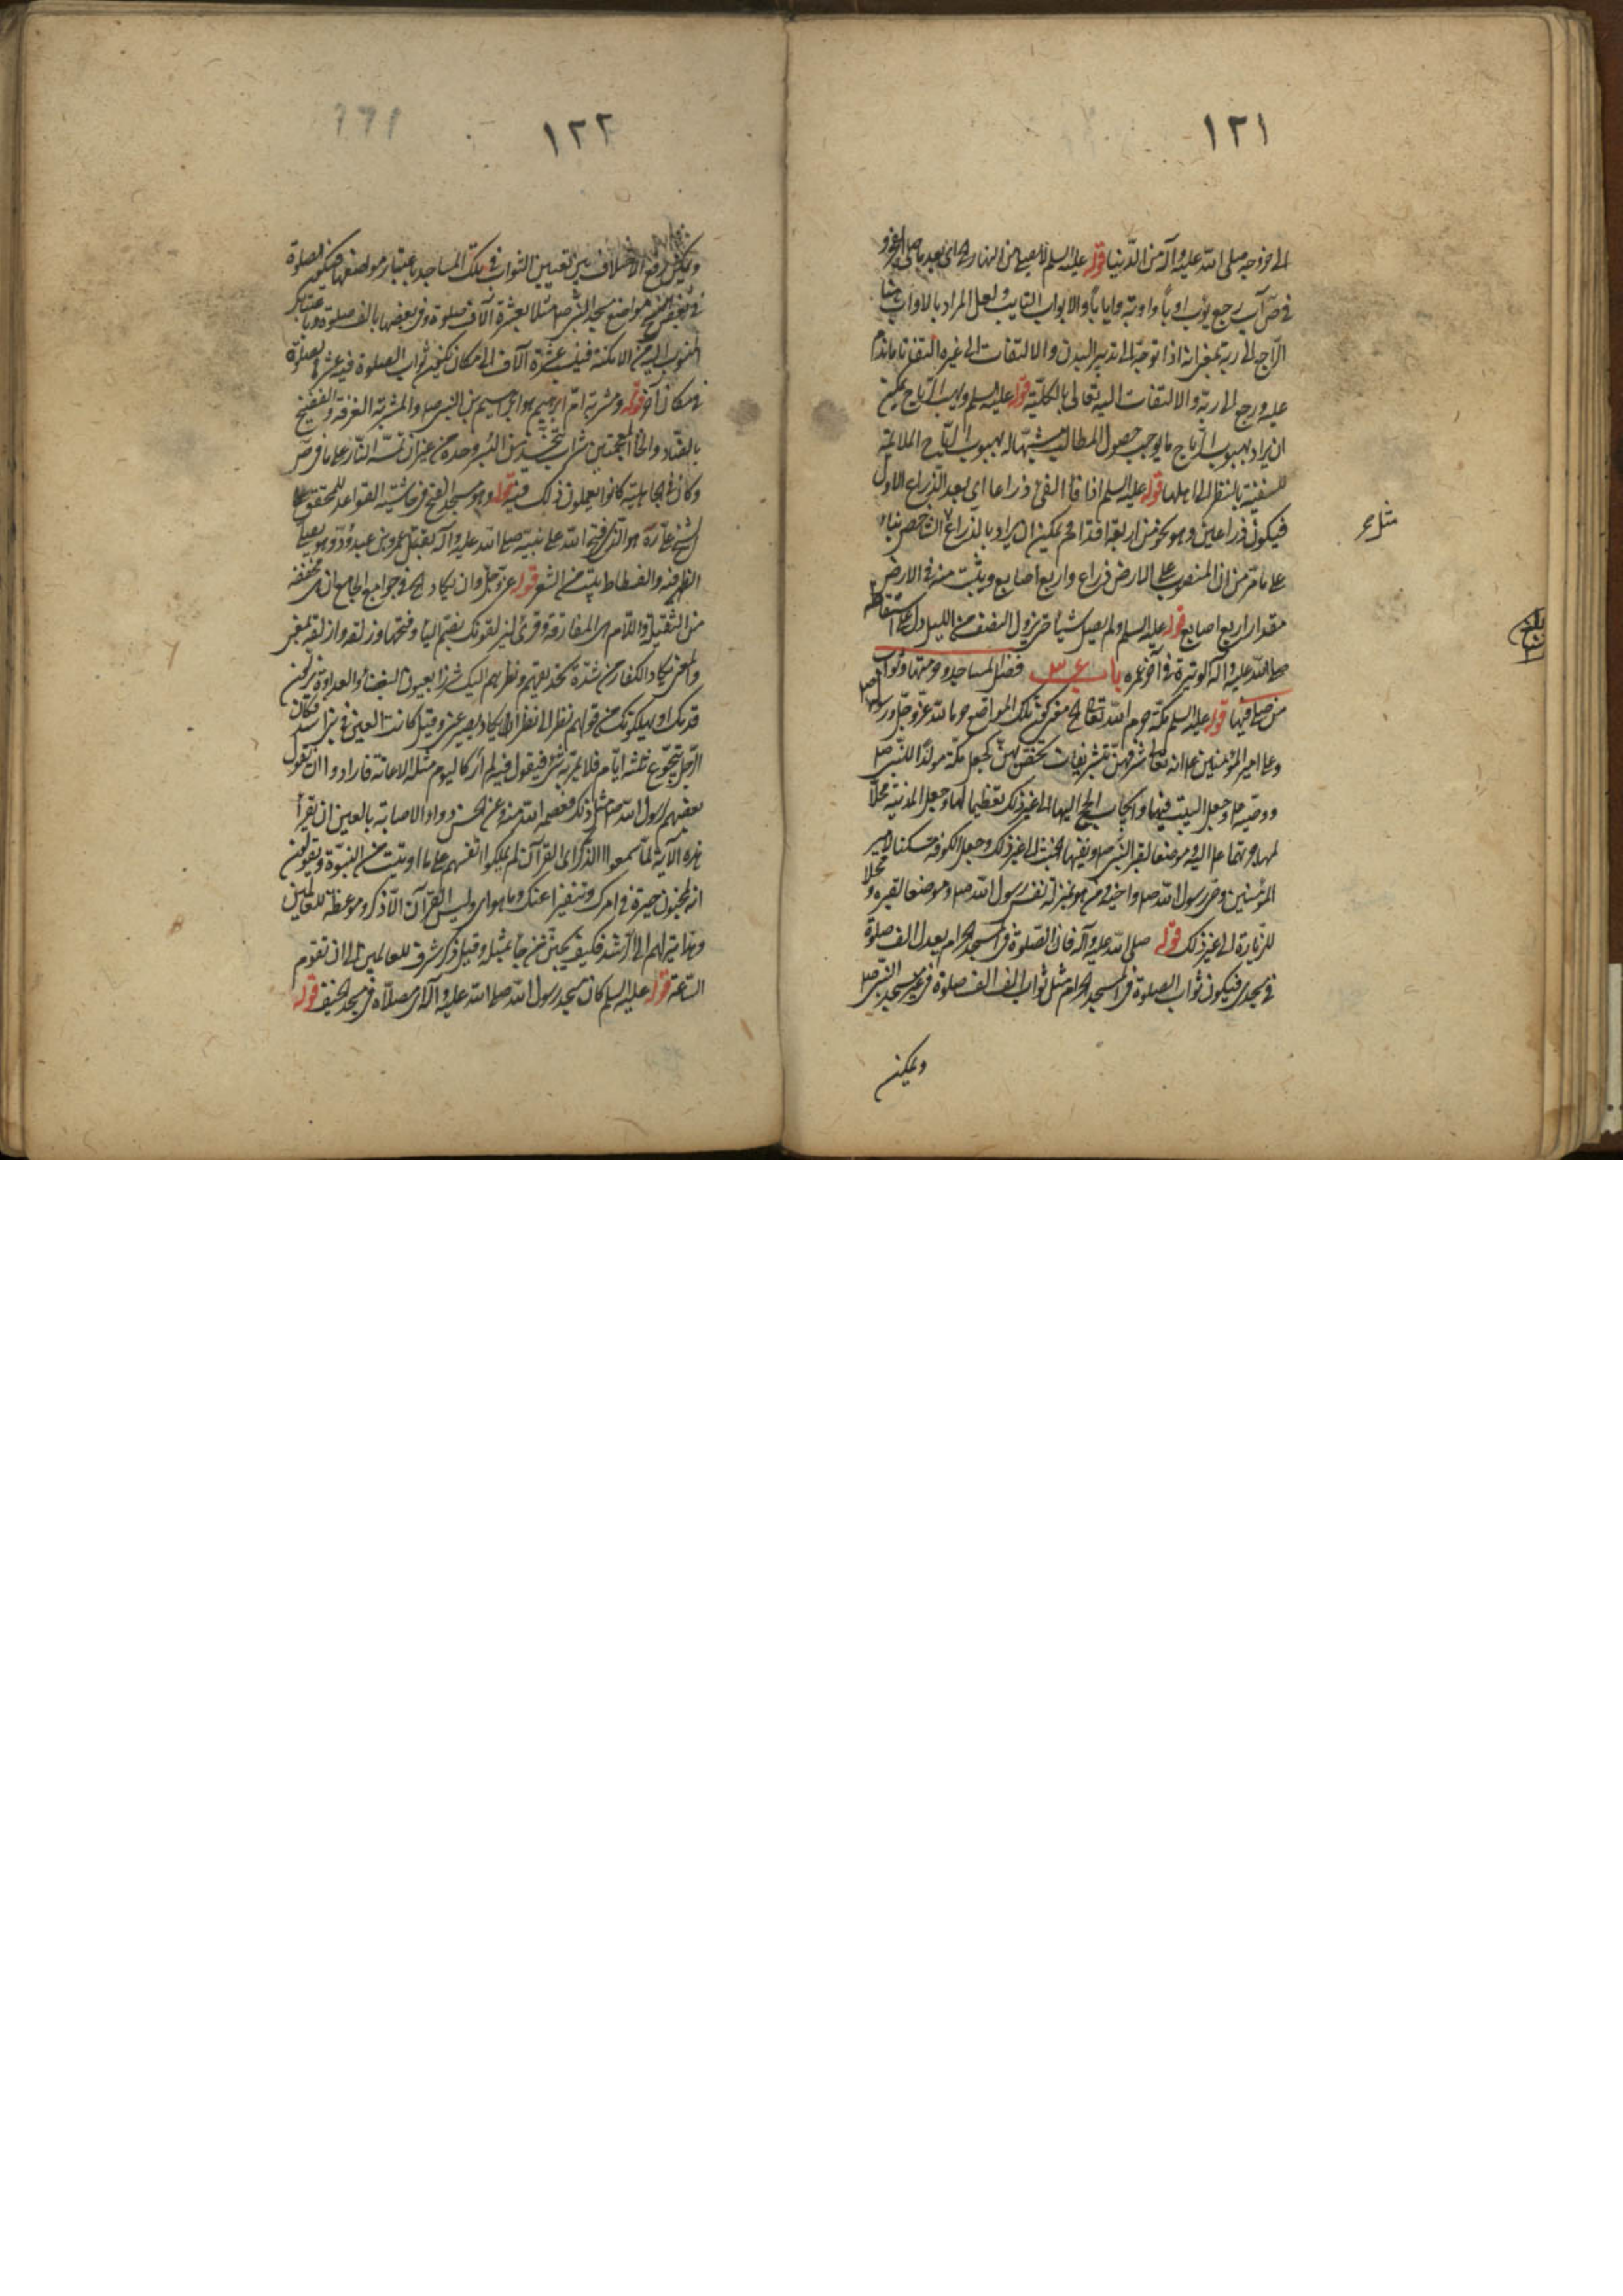 ١٢١
الى خروجه صلى الله عليه وآله من الدنيا قوله عليه السلم لا يصلي من النهار
في ص آب رجع يؤب اوبا واوبة وايابا والاواب التايب ولعل المراد بالاواب هنا
الراجع الى ربه بمعنى انه اذا توجه الى تدبير البدن والالتفات الى غيره التفت تاما ندم
عليه ورجع الى ربه والالتفات اليه تعالى بالكلية قوله عليه السلم وتهب الرياح يمكن
ان يراد بهبوب الرياح ما يوجب حصول المطالب مشبها له بهبوب الرياح الملايمة
للسفينة بالنظر الى اهلها قوله عليه السلم اذا فاء الفيء ذراعا اي بعد الذراع الاول
فيكون ذراعين وهو نحو من اربعة اقدام ويمكن ان يراد بالذراع الشاخص بناء
على ما مر من ان المنصوب على الارض ذراع واربع اصابع ويثبت منه في الارض
مقدار اربع اصابع قوله عليه السلم ولم يصل شيئا حتى يزول النصف من الليل دل على استقامته
صلى الله عليه وآله الوتيرة في آخر عمره باب فضل المساجد وحرمتها وثواب
من صلى فيها قوله عليه السلم مكة حرم الله تعالى معنى كون تلك المواضع حرما لله عز وجل ورسوله
وعلى امير المؤمنين انه تعالى شرفهن بتشريفات تختص بهن كجعل مكة مولدا للنبي ص
ووصيه وجعل البيت فيها وايجاب الحج اليها الى غير ذلك تعظيما لها وجعل المدينة محلا
لمهاجرتهما وموضعا لقبر النبي ص الى غير ذلك وجعل الكوفة مسكنا لامير
المؤمنين وصي رسول الله ص واخيه ومن هو بمنزلة نفس رسول الله ص وموضعا لقبره ومحلا
للزيارة الى غير ذلك قوله صلى الله عليه وآله فان الصلوة في المسجد الحرام يعدل الف صلوة
في مسجدي فيكون ثواب الصلوة في المسجد الحرام مثل ثواب الف الف صلوة في غير مسجد النبي ص
ويمكن
مثل
بلغ
١٢٢
ويمكن رفع الاختلاف بين تعيين الثواب في تلك المساجد باعتبار مواضعها فيكون الصلوة
في بعض مواضع مسجد النبي ص مثلا بعشرة آلاف صلوة وفي بعضها بالف صلوة وباعتبار
المنسوب اليه من الامكنة عشرة آلاف الى مكان يكون ثواب الصلوة فيه عشر صلوة
في مكان آخر قوله ومشربة ام ابرهيم هو ابرهيم بن النبي ص والمشربة الغرفة والفضيخ
بالضاد والخاء المعجمتين شراب يتخذ من البسر وحده من غير ان تمسه النار على ما في ص
وكان في الجاهلية كانوا يعملون ذلك فيه قوله وهو مسجد الفتح في حاشية القواعد للمحقق
الشيخ علي ره هو الذي فتح الله على نبيه صلى الله عليه وآله بقتل عمرو بن عبد ود وهو يصلي
الظهر فيه والفسطاط بيت من الشعر قوله عز وجل وان يكاد في جوامع الجامع ان مخففة
من الثقيلة واللام هي الفارقة وقرئ ليزلقونك بضم الياء وفتحها وزلقه وازلقه بمعنى
والمعنى يكاد الكفار من شدة تحديقهم ونظرهم اليك شزرا بعيون البغضاء والعداوة يزلون
قدمك او يهلكونك من قولهم نظر الى نظرا يكاد يصرعني وقيل كانت العين في بني اسد فكان
الرجل يتجوع ثلثة ايام فلا يمر به شيء فيقول فيه لم ار كاليوم مثله الا عانه فارادوا ان يقول
بعضهم لرسول الله ص مثل ذلك فعصمه الله منه وعن الحسن دواء الاصابة بالعين ان تقرأ
هذه الآية لما سمعوا الذكر اي القرآن لم يملكوا انفسهم على ما اوتيت من النبوة ويقولون
انه لمجنون حيرة في امرك وتنفيرا عنك وما هو اي وليس القرآن الا ذكر وموعظة للعالمين
وهداية لهم الى الرشد فكيف يجنن من جاء بمثله وقيل ذكر شرف للعالمين الى ان تقوم
الساعة قوله عليه السلم كان مسجد رسول الله صلى الله عليه وآله اي مصلاه في مسجد الخيف قوله